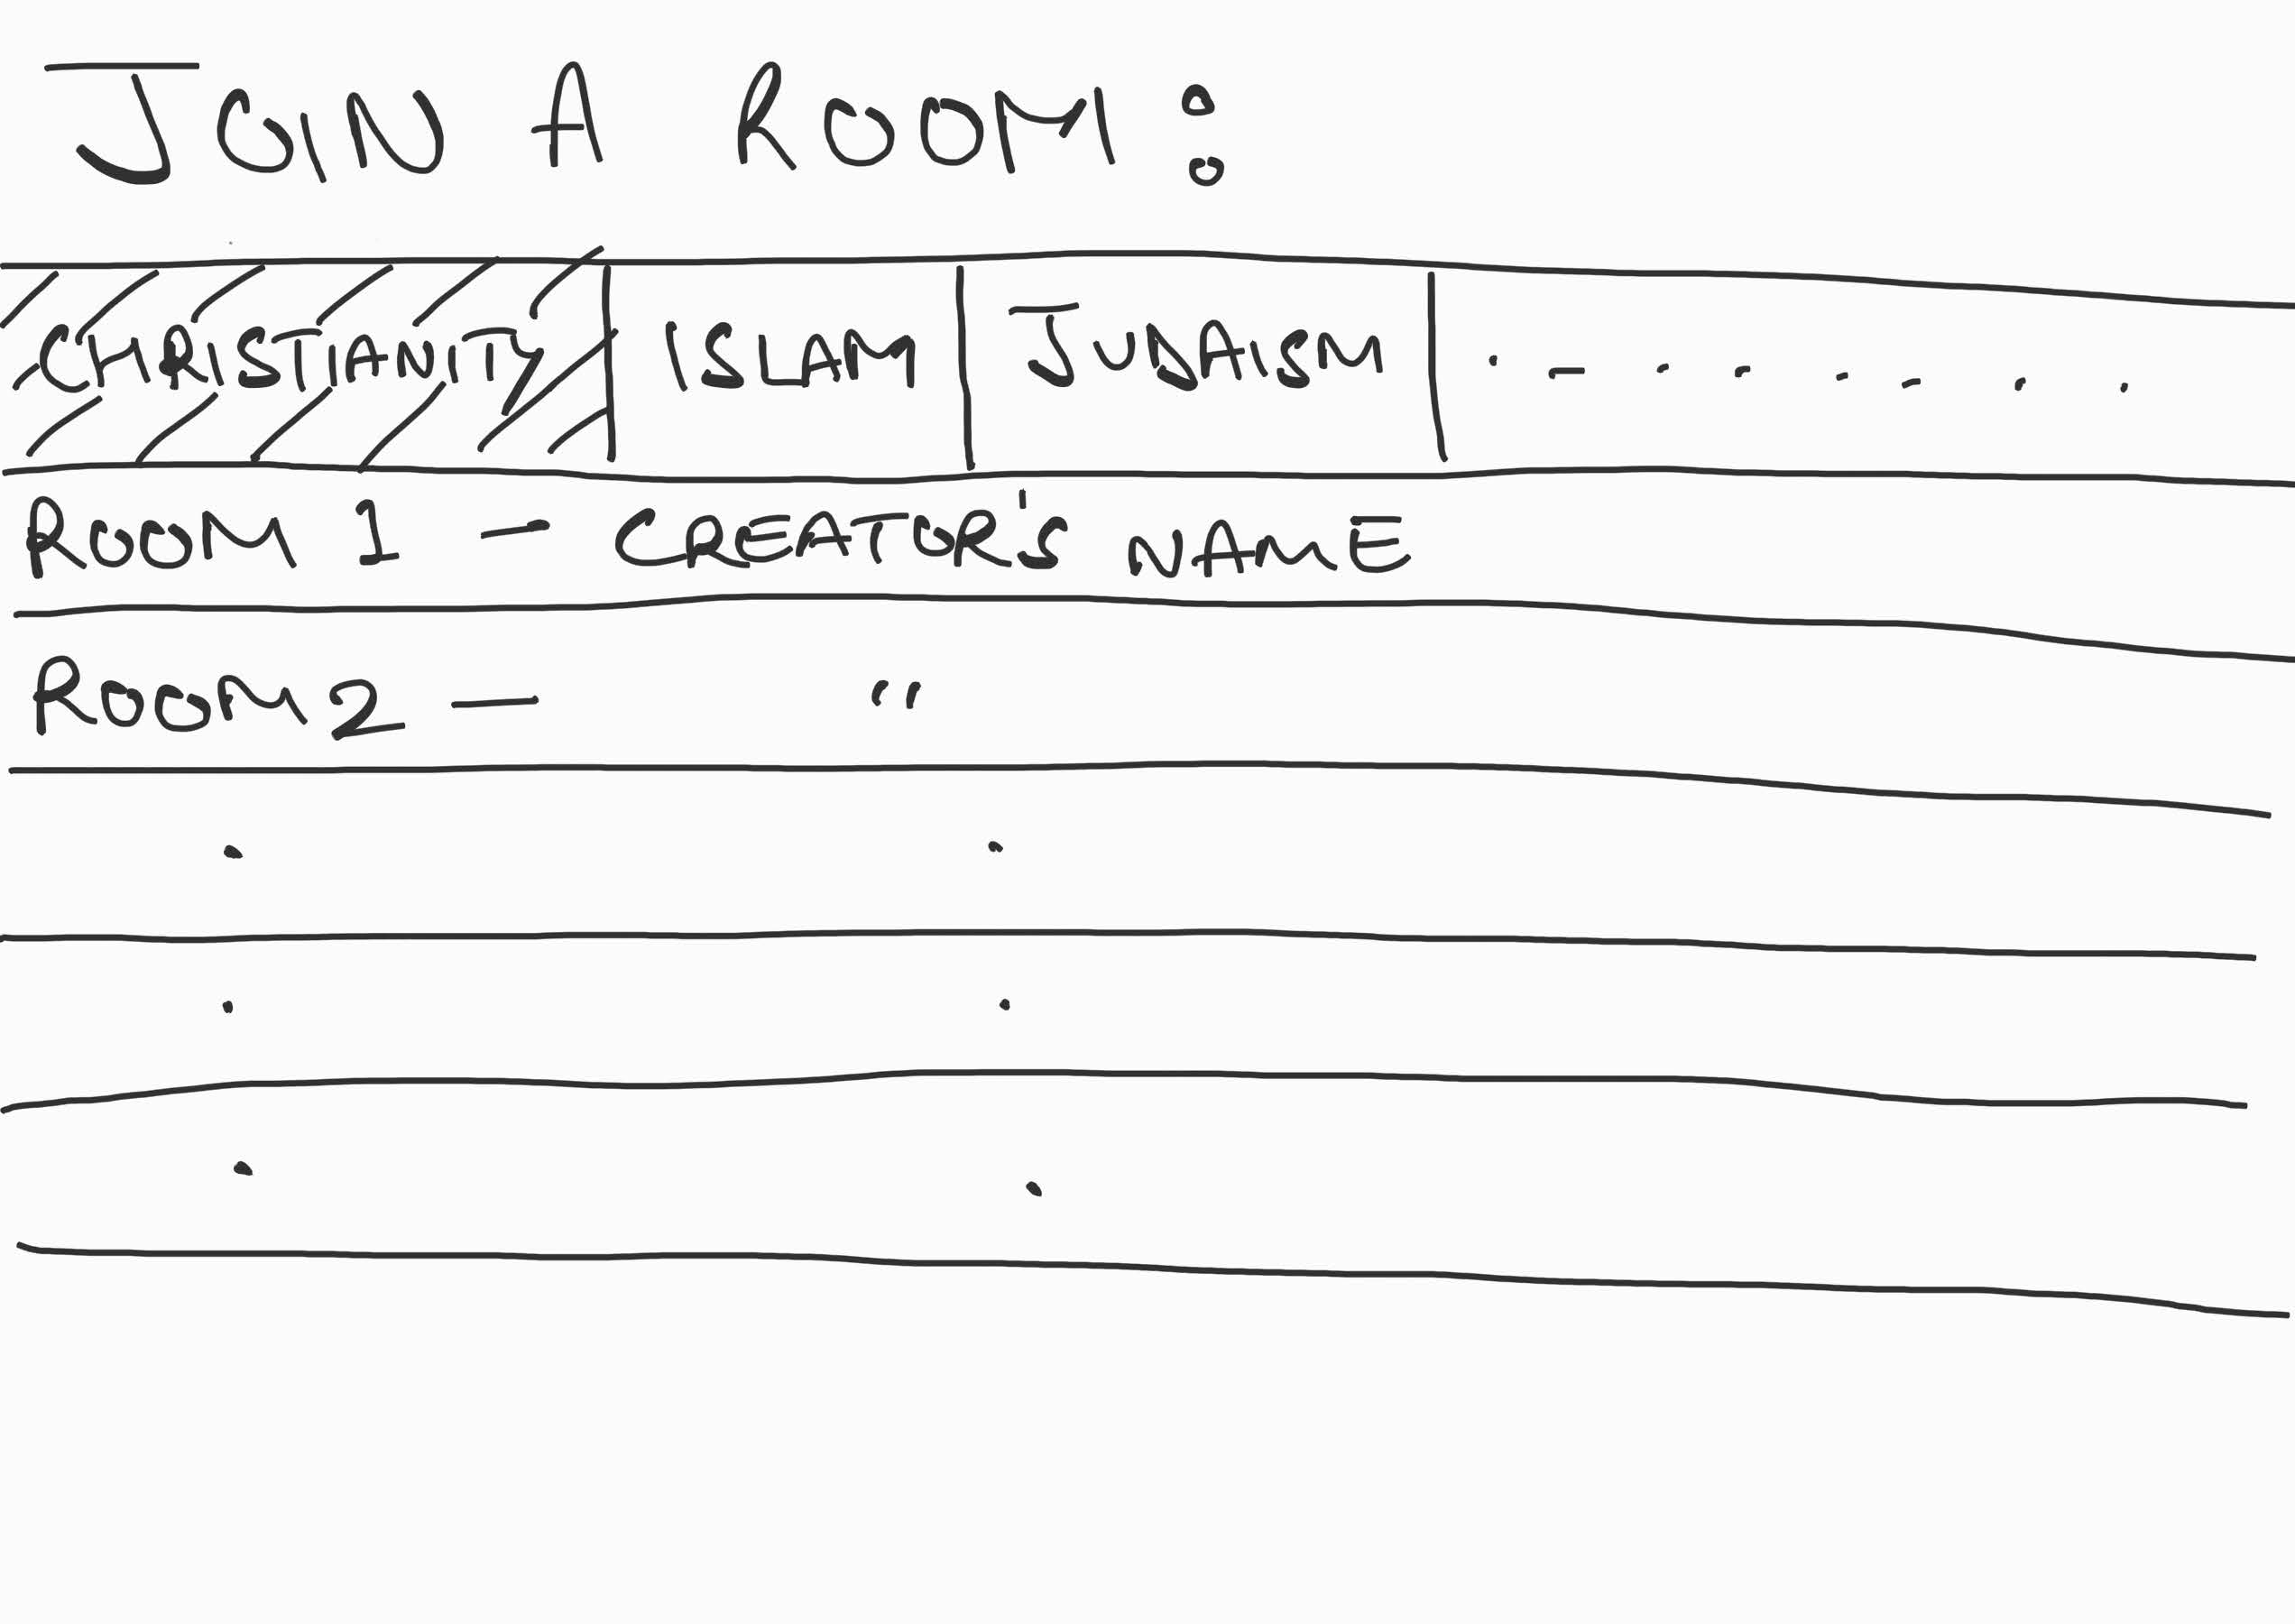 JOIN A ROOM :
CHRISTIANITY ISLAM JUDAISM . - . . . . . .
ROOM 1 — CREATOR'S NAME
ROOM 2 — "
. .
. .
. .